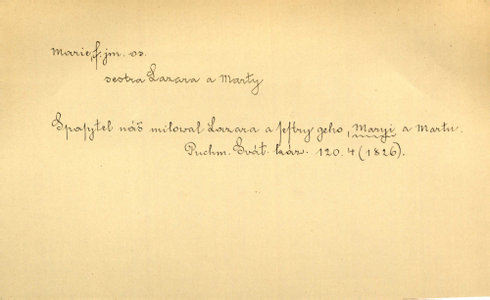 Marie, f. jm. os.
sestra Lazara a Marty
Spasytel náš milowal Lazara a sestry geho, Maryi a Martu.
Puchm. Svát. káz. 120. 4 (1826).